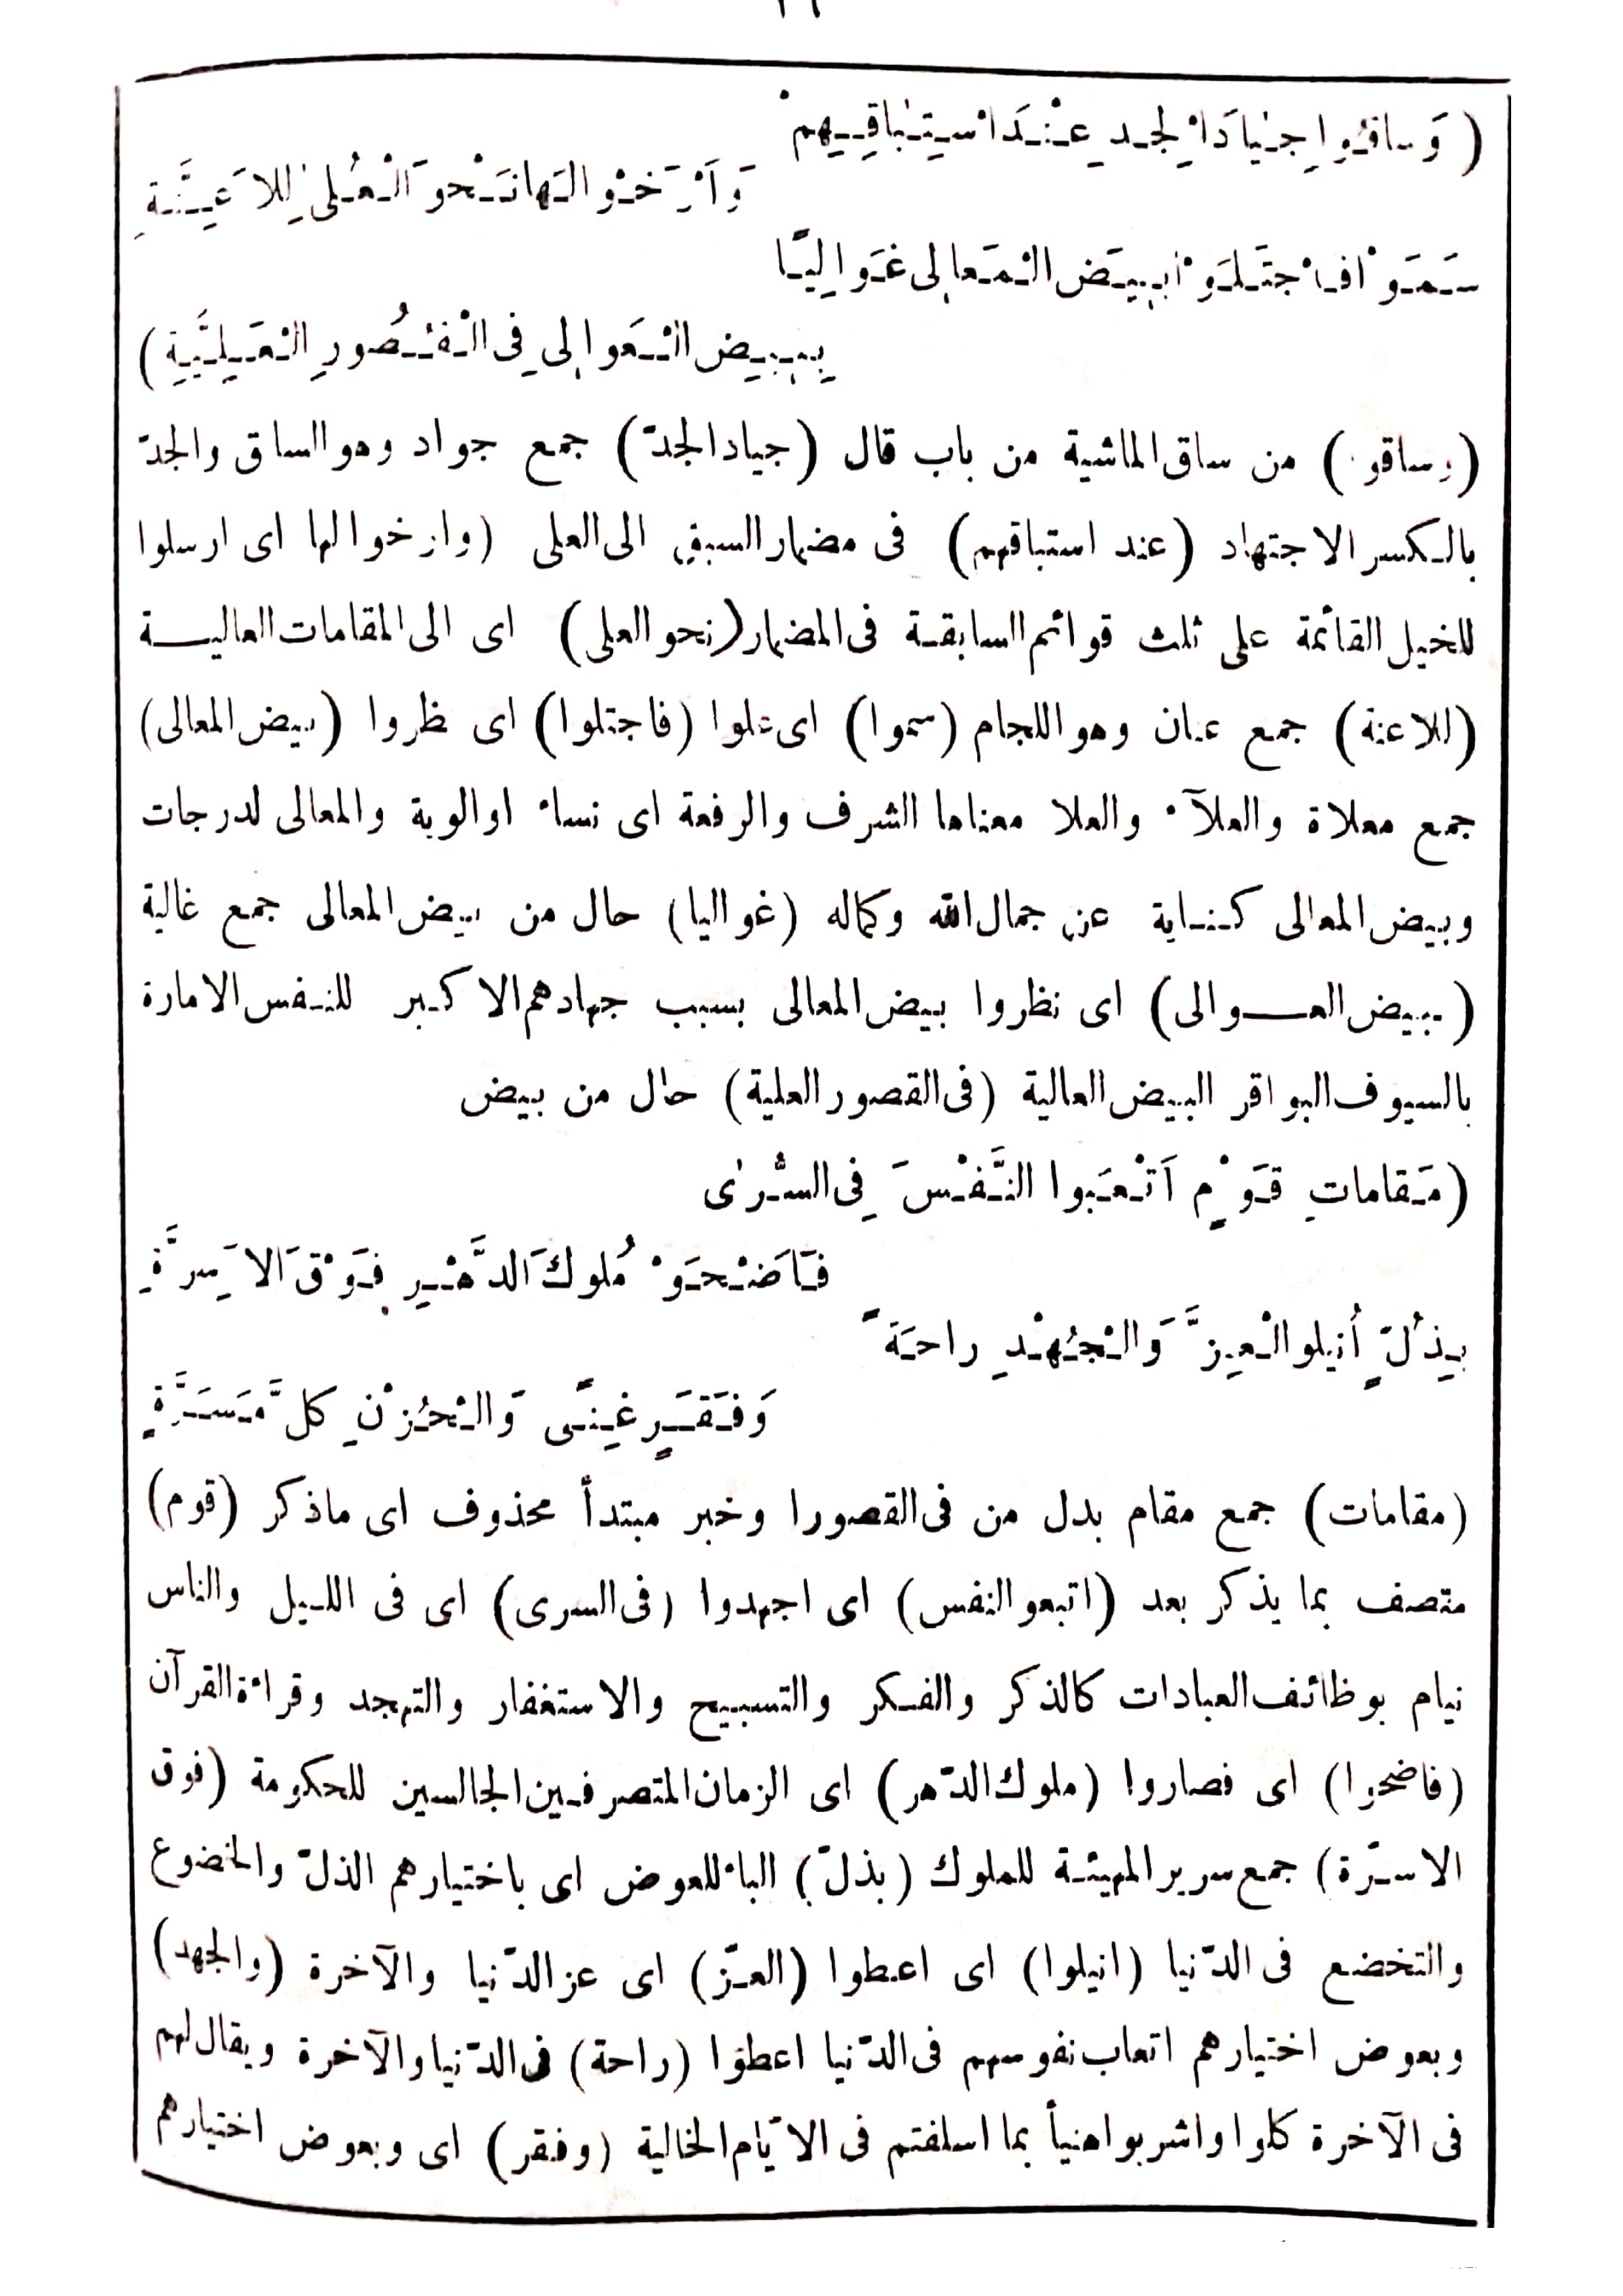 ( وَساقُوا جِيادَ الْجِدِ عِنْدَ اسْتِبَاقِهِمْ
وَاَرْخَوْا لَهَا نَحْوَ الْعُلىٰ لِلاَعِنَّةِ
سَمَوْا فَاجْتَلَوْا بِيضَ الْمَعَالِى غَوَالِيًا
بِبِيضِ الْعَوالِى فِى الْقُصُورِ الْعَلِيَّةِ )
(وساقوا) من ساق الماشية من باب قال (جياد الجدّ) جمع جواد وهو الساق والجدّ
بالكسر الاجتهاد (عند استباقهم) فى مضمار السبق الى العلى (وارخوا لها اى ارسلوا
للخيل القائمة على ثلث قوائم السابقة فى المضمار (نحو العلى) اى الى المقامات العالية
(للاعنة) جمع عنان وهو اللجام (سموا) اى علوا (فاجتلوا) اى نظروا (بيض المعالى)
جمع معلاة والعلآء والعلا معناها الشرف والرفعة اى نساء او الوية والمعالى لدرجات
وبيض المعالى كناية عن جمال الله وكماله (غواليا) حال من بيض المعالى جمع غالية
(ببيض العوالى) اى نظروا بيض المعالى بسبب جهادهم الاكبر للنفس الامارة
بالسيوف البواقر البيض العالية (فى القصور العلية) حال من بيض
(مَقامَاتِ قَوْمٍ اَتْعَبوا النَّفْسَ فِى السُّرٰى
فَاَضْحَوْ مُلوكَ الدَّهْرِ فَوْقَ الاَسِرَّةِ
بِذُلٍّ أُنيلو الْعِزَّ وَالْجُهْدِ راحَةً
وَفَقْرٍ غِنًى وَالْحُزْنِ كلَّ مَسَرَّةٍ
(مقامات) جمع مقام بدل من فى القصورا وخبر مبتدأ محذوف اى ماذكر (قوم)
متصف بما يذكر بعد (اتبعو النفس) اى اجهدوا (فى السرى) اى فى الليل والناس
نيام بوظائف العبادات كالذكر والفكر والتسبيح والاستغفار والتهجد وقراءة القرآن
(فاضحوا) اى فصاروا (ملوك الدّهر) اى الزمان المتصرفين الجالسين للحكومة (فوق
الاسرّة) جمع سرير المهيئة للملوك (بذلّ) الباء للعوض اى باختيارهم الذلّ والخضوع
والتخضع فى الدّنيا (انيلوا) اى اعطوا (العزّ) اى عز الدّنيا والآخرة (والجهد)
وبعوض اختيارهم اتعاب نفوسهم فى الدّنيا اعطوا (راحة) فى الدّنيا والآخرة ويقال لهم
فى الآخرة كلوا واشربوا هنيأ بما اسلفتم فى الايّام الخالية (وفقر) اى وبعوض اختيارهم